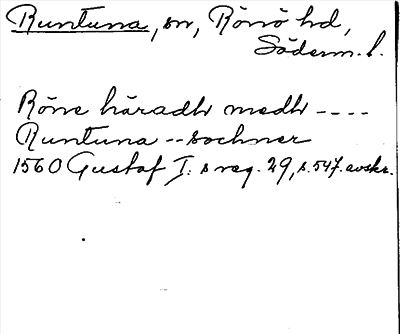 Runtuna, sn, Rönö hd,
Söderm. l.
Röne häradh medh ----
Runtuna -- sochner
1560 Gustaf I. s reg. 29, s. 547. avskr.